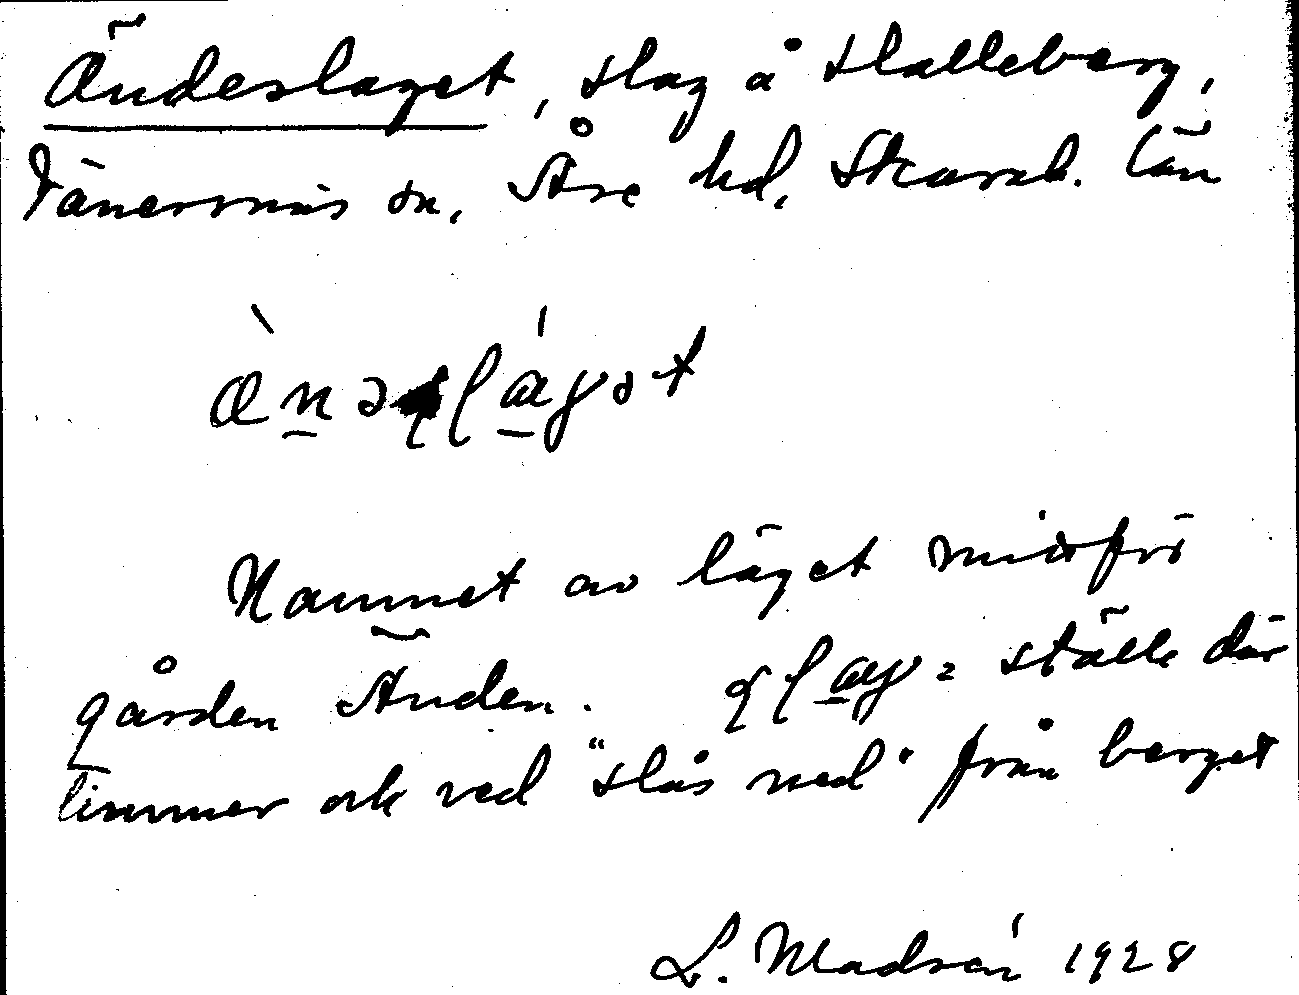 Ändeslaget, slag å Halleberg,
Vänersnäs sn, Åse hd, Skarab. län
Namnet av läget mitt för
gården Änden. = ställe där
timmer ock ved "slås ned" från berget
L. Madsén 1928